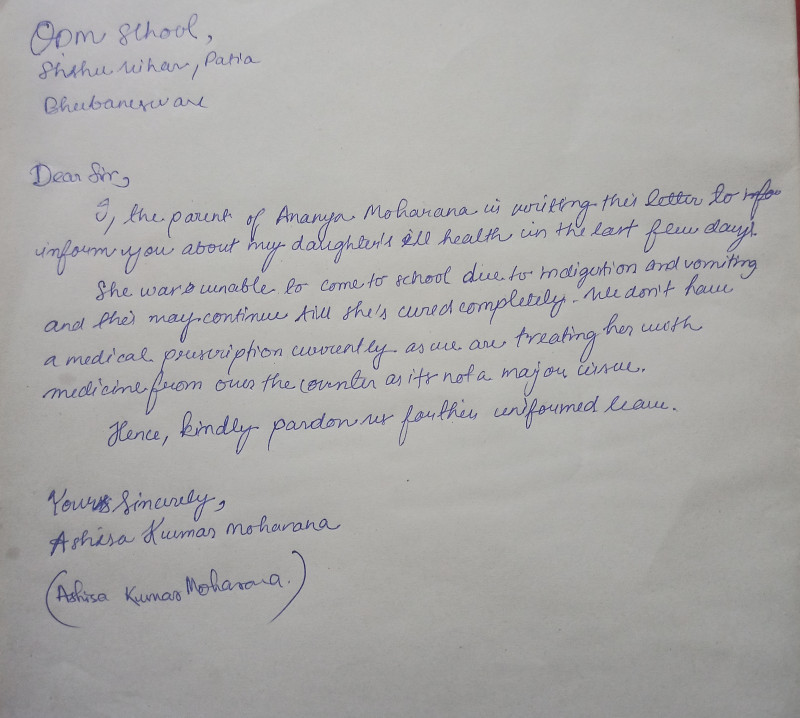 ODM School,
Shishu Vihar, Patia
Bhubaneswar
Dear Sir,
I, the parent of Ananya Moharana is writing this letter to info
inform you about my daughter's ill health in the last few days.
She was unable to come to school due to indigestion and vomiting
and this may continue till she's cured completely. We don't have
a medical prescription currently as we are treating her with
medicine from over the counter as its not a major issue.
Hence, kindly pardon us for this uniformed leave.
Yours Sincerely,
Ashisa Kumar Moharana
(Ashisa Kumar Moharana.)